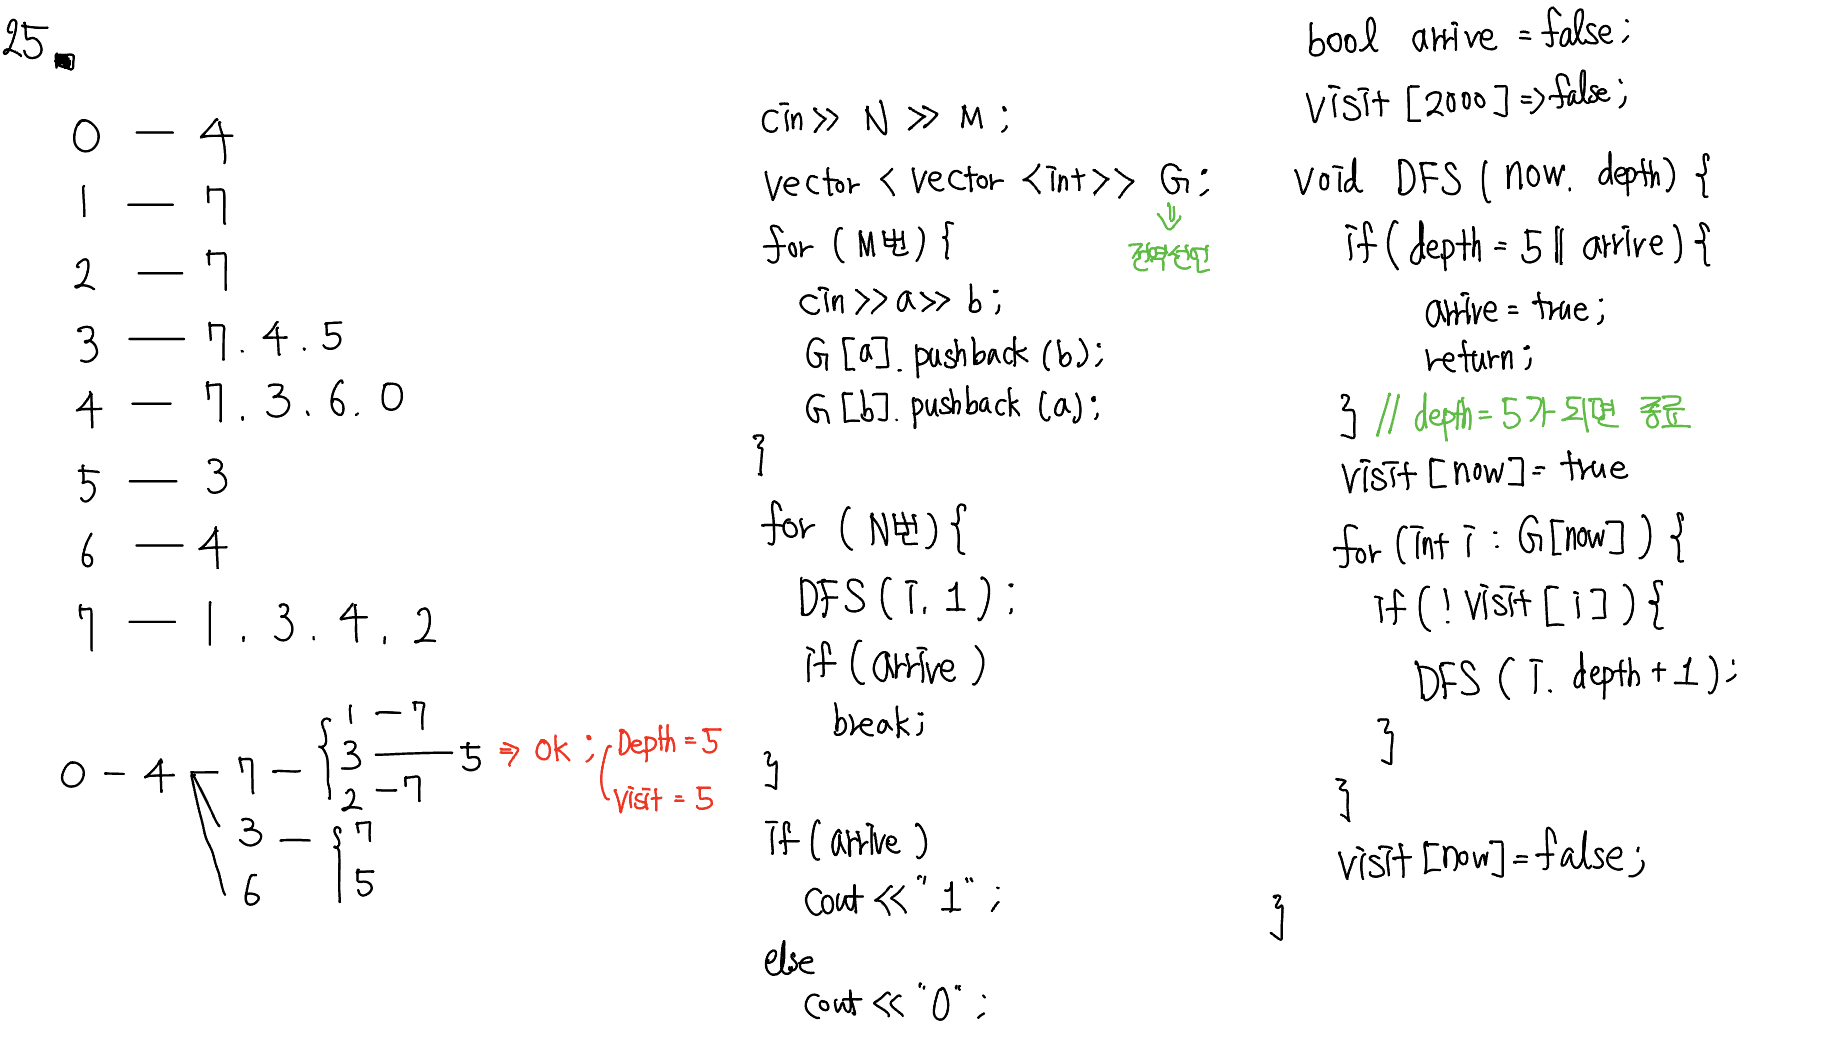 25.
0 - 4
1 - 7
2 - 7
3 - 7. 4. 5
4 - 7. 3. 6. 0
5 - 3
6 - 4
7 - 1. 3. 4. 2
0 - 4 - 7 - { 1 - 7
3 - 5 ⇒ ok ; Depth = 5
2 - 7 visit = 5
3 - { 7
6 5
cin >> N >> M ;
vector < vector <int>> G ;
⇓
전역선언
for ( M번 ) {
cin >> a >> b ;
G [a]. pushback (b);
G [b]. pushback (a);
}
for ( N번 ) {
DFS ( i. 1 ) ;
if ( arrive )
break ;
}
if ( arrive )
cout << "1" ;
else
cout << "0" ;
bool arrive = false ;
visit [2000] => false ;
void DFS ( now. depth) {
if ( depth = 5 || arrive ) {
arrive = true ;
return ;
} // depth = 5가 되면 종료
visit [now] = true
for ( int i : G[now] ) {
if ( ! visit [ i ] ) {
DFS ( i. depth + 1 ) ;
}
}
visit [now] = false ;
}